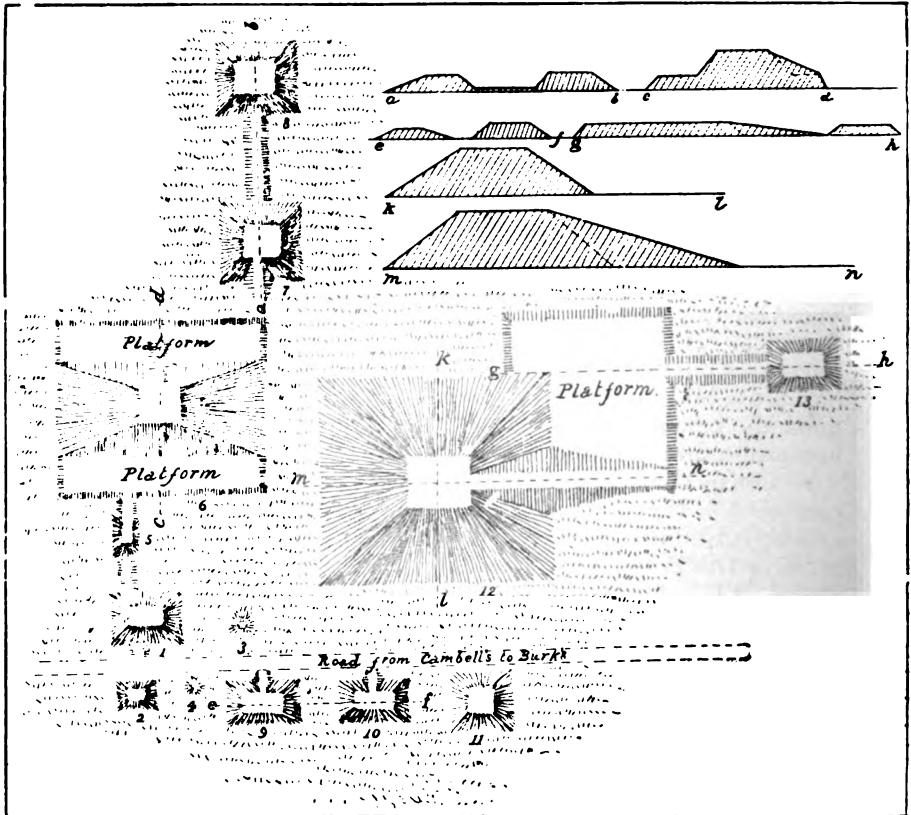 b
8
a b c d
e f g h
k l
m n
7
d
a
Platform
k
g
Platform.
h
13
m
n
Platform
6
c
5
l 12
1 3
Road from Cambell's to Burks
2 4 e 9 10 f 11